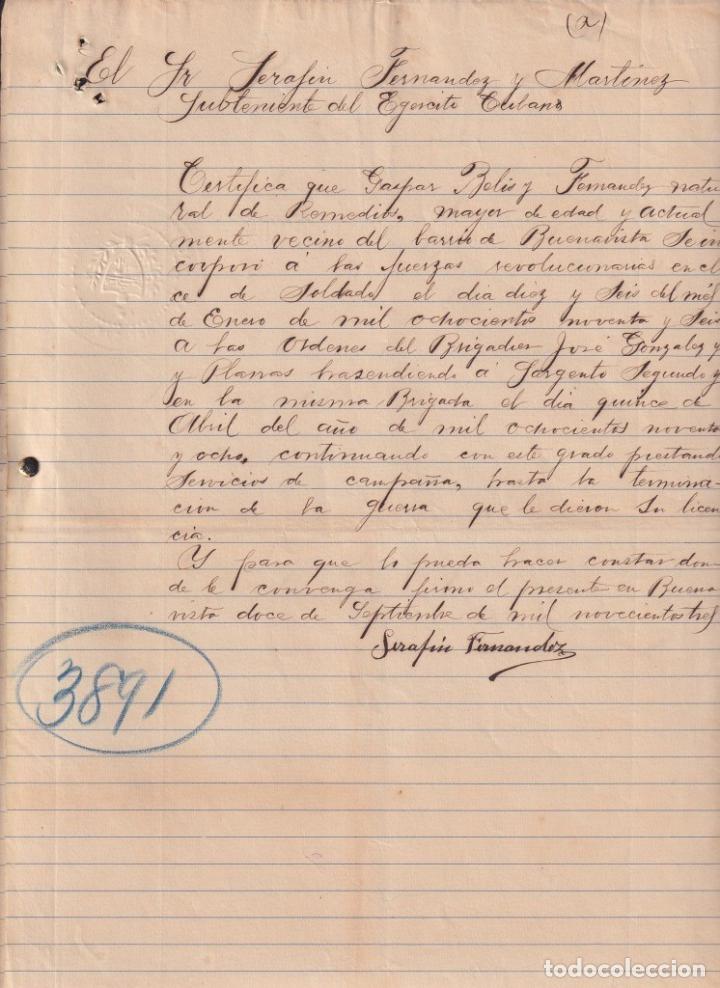 (a)
El Sr Serafin Fernandez y Martinez
Subteniente del Egercito Cubano
Certifica que Gaspar Belis y Fernandez natu
ral de Remedios, mayor de edad y actual
mente vecino del barrio de Buenavista Se in
corporó á las fuerzas revolucionarias en cl
ce de Soldado el dia diez y Seis del més
de Enero de mil ochocientos noventa y Seis
a las Ordenes del Brigadier José Gonzalez y
y Planas hasendiendo á Sargento Segundo y
en la misma Brigada el dia quince de
Abril del año de mil ochocientos noventa
y ocho, continuando con este grado prestando
Servicios de campaña, hasta la termina-
cion de la guerra que le dieron Su licen
cia.
Y para que lo pueda hacer constar don
de le convenga firmo el presente en Buena
vista doce de Septiembre de mil novecientos tres
Serafin Fernandez
3871
todocoleccion
todocoleccion.net